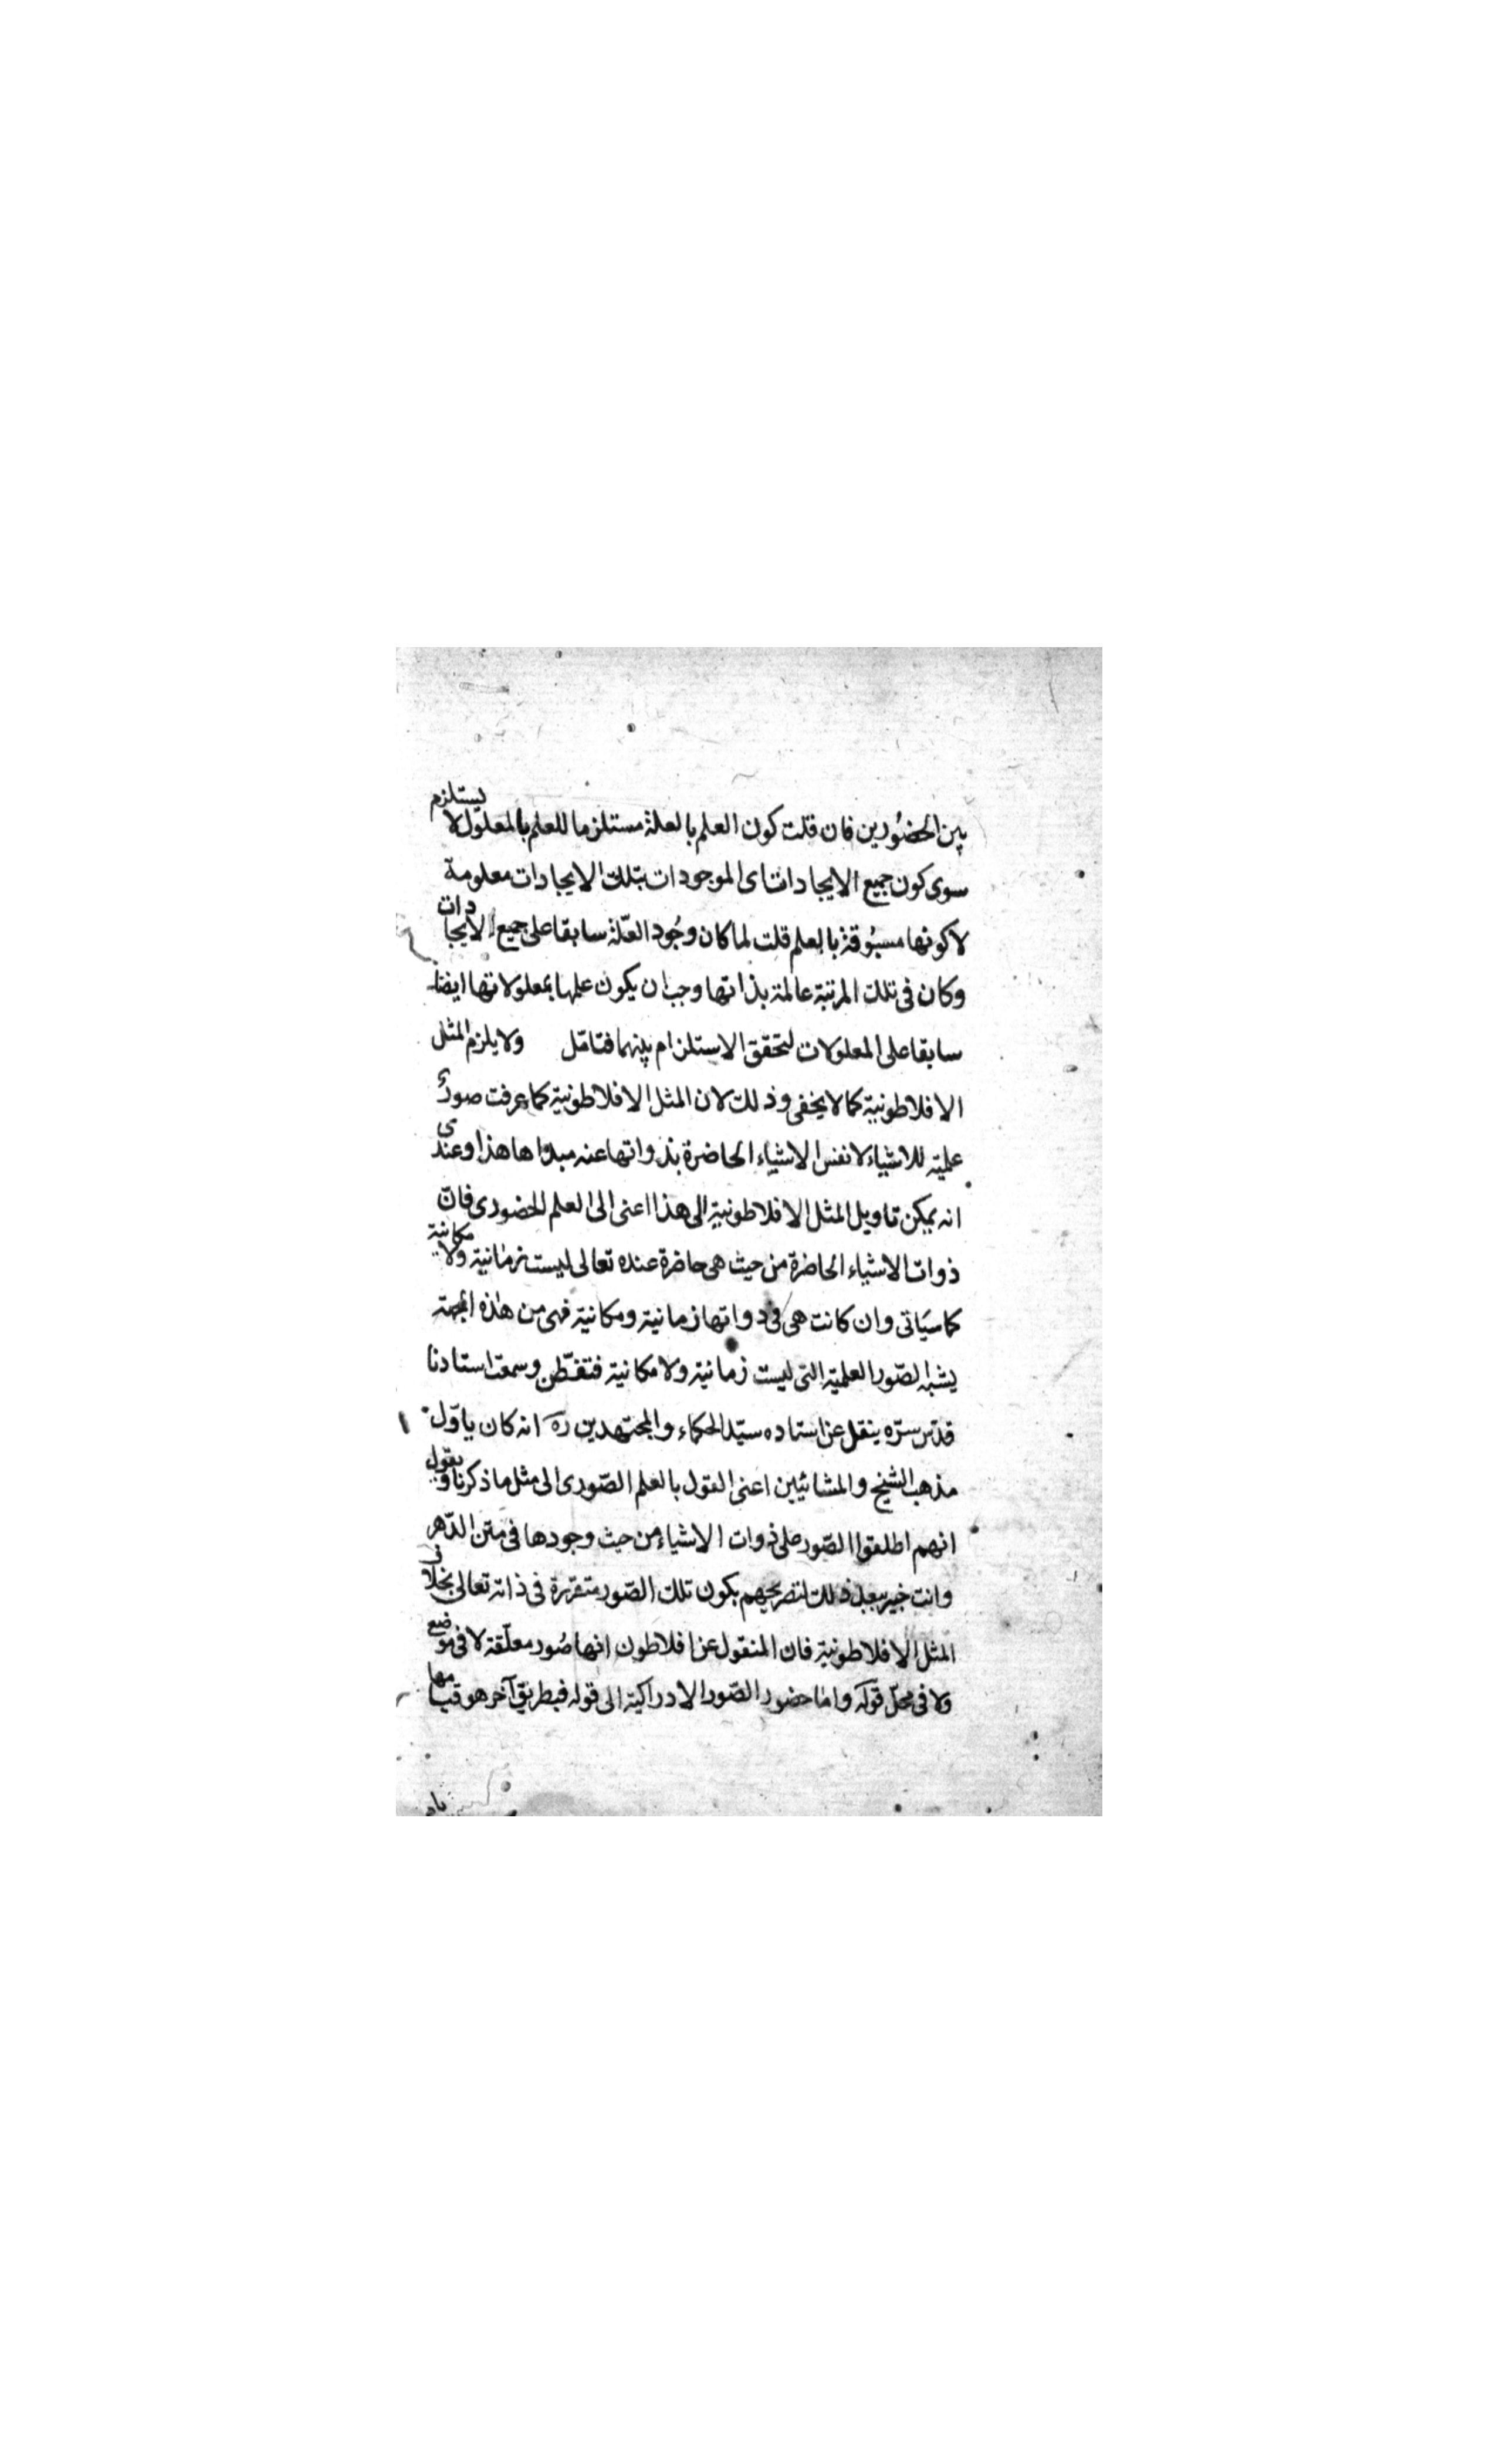 بين الحضورين فان قلت كون العلم بالعلة مستلزما للعلم بالمعلول لا يستلزم
سوى كون جميع الايجادات اى الموجودات بتلك الايجادات معلومة
لا كونها مسبوقة بالعلم قلت لما كان وجود العلّة سابقا على جميع الايجادات
وكان فى تلك المرتبة عالمة بذاتها وجب ان يكون علمها بمعلولاتها ايضا
سابقا على المعلولات لتحقق الاستلزام بينهما فتامّل ولا يلزم المثل
الافلاطونية كما لا يخفى وذلك لان المثل الافلاطونية كما عرفت صور
علمية للاشياء لا نفس الاشياء الحاضرة بذواتها عنه مبداها هذا وعندى
انه يمكن تاويل المثل الافلاطونية الى هذا اعنى الى العلم الحضورى فانّ
ذوات الاشياء الحاضرة من حيث هى حاضرة عنده تعالى ليست زمانية ولا مكانية
كما سيَاتى وان كانت هى فى ذواتها زمانية ومكانية فهى من هذه الجهة
يشبه الصّور العلمية التى ليست زمانية ولا مكانية فتفطّن وسمعت استادنا
قدّس سرّه ينقل عن استاده سيّد الحكماء والمجتهدين ره انه كان ياوّل
مذهب الشيخ والمشائيين اعنى القول بالعلم الصّورى الى مثل ما ذكرنا ويقول
انهم اطلقوا الصّور على ذوات الاشياء من حيث وجودها فى متن الدّهر
وانت خبير ببعد ذلك لتصريحهم بكون تلك الصّور متقررة فى ذاته تعالى بخلاف
المثل الافلاطونية فان المنقول عن افلاطون انها صُور معلّقة لا فى موضع
ولا فى محلّ قوله وامّا حضور الصّور الادراكية الى قوله فبطريق آخر هو قيامها